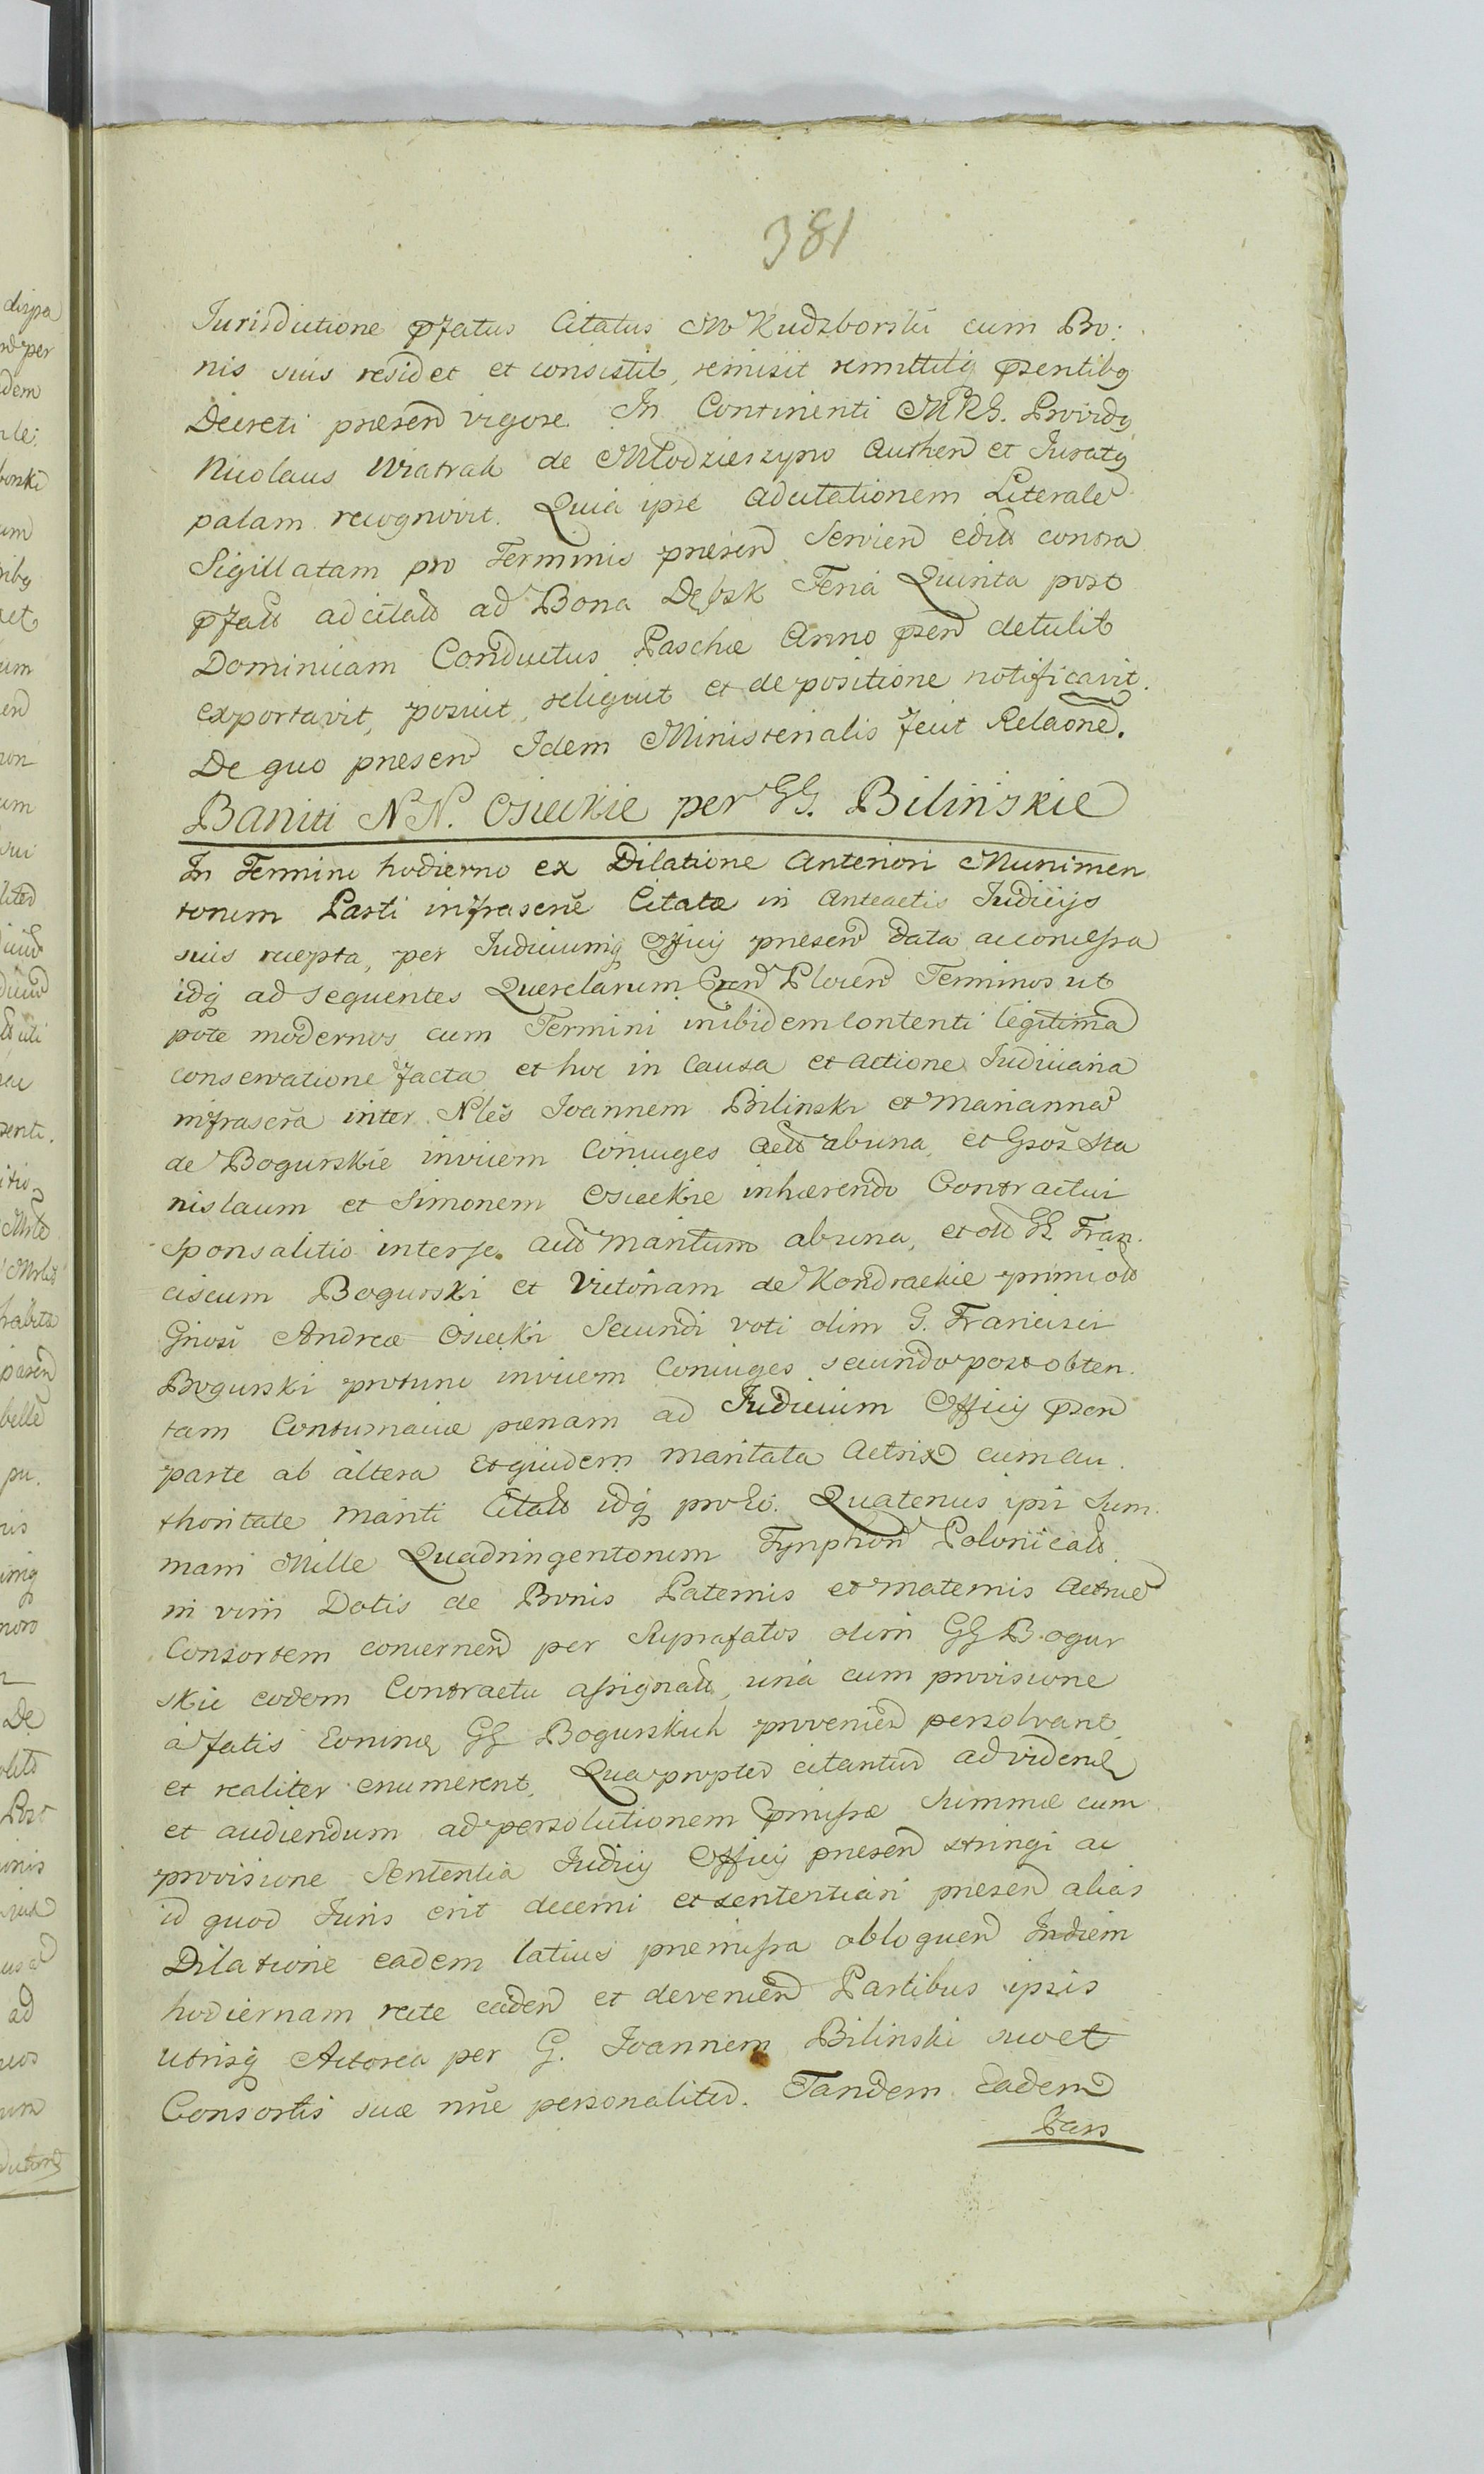 381
Jurisdictione pfatus Citatus M Kudzborski cum Bo:
nis suis residet et consistit, remisit remittitq psentibq
Decreti presen vigore. In Continenti MRG. Providq
Nicolaus Wiatrak de Młodzieszyno Authen et Juratq
palam recognovit. Quia ipse adcitationem Literale
Sigillatam pro Terminis presen Servien edit contra
pfat adcitat ad Bona Dębsk Feria Quinta post
Dominicam Conductus Paschæ Anno psen detulit
exportavit, posuit, reliquit et de positione notificavit.
De quo presen Idem Ministerialis fecit Relaone.
Baniti NN. Osieckie per GG. Bilińskie
In Termino hodierno ex Dilatione Anteriori Munimen
torum Parti infrascrē Citatæ in anteactis Judicijs
suis recepta, per Judiciumq Officij presen data ac concessa
idq ad sequentes Querelarum Pren Plocen Terminos ut
pote modernos cum Termini inibidem contenti legitima
conservatione facta et hoc in causa et actione Judiciaria
infrascra inter Nles Joannem Bilinski et Marianna
de Bogurskie invicem Coniuges act ab una et Gsos Sta
nislaum et Simonem Osieckie inhærendo Contractui
Sponsalitio inter se act maritum ab una, et olt GG. Fran.
ciscum Bogurski et Victoriam de Kondrackie primi olt
Gnosi Andreæ Osiecki Secundi voti olim G. Francisci
Bogurski protunc invicem Coniuges secundo post obten.
tam Contumaciæ pœnam ad Judicium Officij psen
parte ab altera Ejusdem maritata Actrix cum au.
thoritate mariti Citat idq pro Eo. Quatenus ipsi Sum.
mam Mille Quadringentorum Tynphon Polonicalt
in vim Dotis de Bonis Paternis et maternis Actrice
Consortem concernen per Suprafatos olim GG Bogur
skie eodem Contractu assignat, una cum provisione
à fatis Eorumq GG Bogurskich provenien persolvant
et realiter enumerent. Quapropter citantur ad viden
et audiendum ad persolutionem pmissæ Summæ cum
provisione Sententia Judicij Officij presen stringi ac
id quod Juris erit decerni et sententiari presen alias
Dilatione eadem latius premissa obloquen In diem
hodiernam recte caden et devenien Partibus ipsis
utrisq Actorea per G. Joannem Bilinski suo et
Consortis suæ nne personaliter. Tandem Eadem
Pars